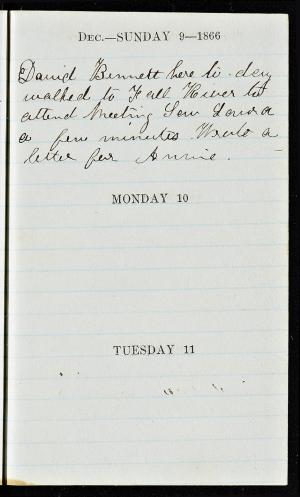 DEC.—SUNDAY 9—1866
Daniel Bennett here to day
walked to Fall River to
attend Meeting Saw Laura
a few minutes Wrote a
letter for Annie.
MONDAY 10
TUESDAY 11